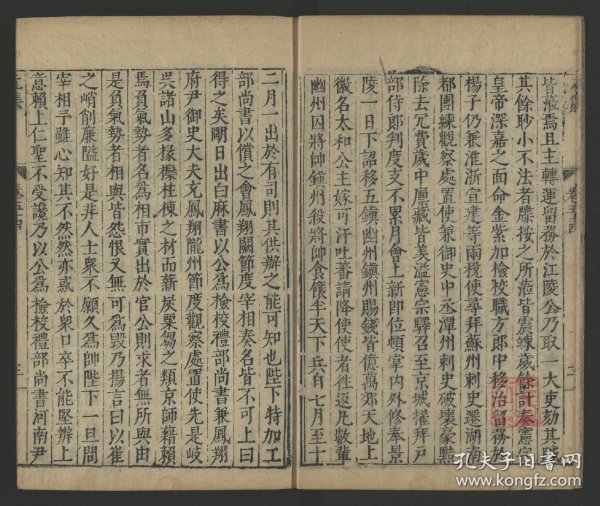 皆淮焉且主轉運留務於江陵公乃取一大吏劾其贓
其餘眇小不法者牒按之所涖皆震竦歲餘計奏憲宗
皇帝深嘉之面命金紫加檢校職方郎中移治留務於
楊子仍兼淮浙宣建等兩稅使尋拜蘇州刺史遷湖南
都團練觀察處置使兼御史中丞潭州刺史破壞豪黠
除去冗費歲中廩藏皆羨溢憲宗驛召至京城權拜戶
部侍郎判度支不累月會上新即位頓掌内外修奉景
陵一日下詔移五鎮幽州鎮州賜錢皆億萬郊天地上
徽名太和公主嫁可汗吐蕃請降使使者往返凡敬輩
幽州囚將帥鎮州殺將帥食饟半天下兵自七月至十
二月一出於有司則其供辦之能可知也陛下特加工
部尚書以償之會鳳翔闕節度宰相奏名皆不可上曰
得之矣明日出白麻書以公爲檢校禮部尚書兼鳳翔
府尹御史大夫充鳳翔隴州節度觀察處置使先是岐
吳諸山多椽櫟柱棟之材而薪炭粟芻之類京師藉賴
焉負氣勢者名爲相市實出於官公則求者無所與由
是負氣勢者相與皆怨恨又無可爲毀乃揚言曰以崔
之峭削廉隘好是非人士衆不願久爲帥陛下一旦問
宰相予雖心知其不然然亦惑於衆口卒不能堅辦上
意賴上仁聖不受讒乃以公爲檢校禮部尚書河南尹
孔夫子旧书网